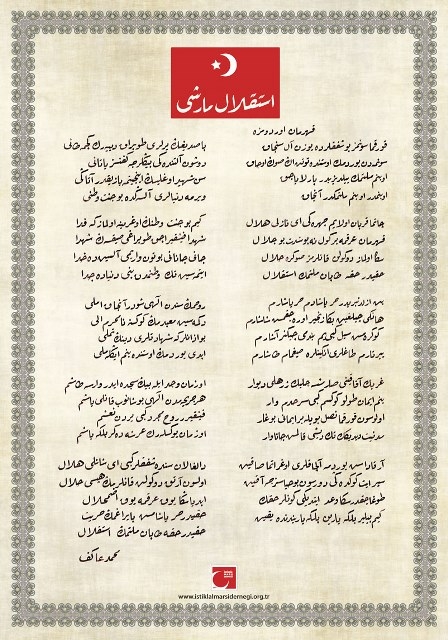 استقلال مارشی
قهرمان اوردومزه
قورقما سونمز بو شفقلرده یوزن آل سنجاق
سونمه‌دن یوردمك اوستنده توتن اڭ صوڭ اوجاق
او بنم ملتمك ییلدیزیدر پارلایاجق
او بنمدر او بنم ملتمكدر آنجاق
چاتما قربان اولایم چهره‌ڭی ای نازلی هلال
قهرمان عرقمه بر گول نه بو شدت بو جلال
سڭا اولماز دوكولن قانلرمز صوڭره حلال
حقیدر حقه طاپان ملتمك استقلال
بن ازلدنبریدر حر یاشادم حر یاشارم
هانكی چیلغین بڭا زنجیر اوره‌جقمش شاشارم
كوكره‌مش سیل گبی‌یم بندمی چیكنر آشارم
ییرتارم طاغلری انگینلره صیغمام طاشارم
غربك آفاقنی صارمشسه چلیك زرهلی دیوار
بنم ایمان طولو كوكسم گبی سرحدم وار
اولوسون قورقما ناصل بویله بر ایمانی بوغار
مدنیت دیدیكڭ تك دیشی قالمش جاناوار
آرقاداش یوردمه آلچاقلری اوغراتما صاقین
سپر ایت كوكده‌ڭی دورسون بو حیاسزجه آقین
طوغاجقدر سڭا وعد ایتدیكی كونلر حقك
كیم بیلیر بلكه یارین بلكه یاریندنده یقین
باصدیغڭ یرلری طوپراق دییه‌رك كچمه طانی
دوشون آلتنده‌كی بیڭلرجه كفنسز یاتانی
سن شهید اوغلیسڭ اینجیتمه یازیقدر آتاڭی
ویرمه دنیالری آلسه‌ڭده بو جنت وطنی
كیم بو جنت وطنڭ اوغرینه اولماز كه فدا
شهدا فیشقیراجق طوپراغی صیقسه‌ڭ شهدا
جانی جانانی بوتون واریمی آلسین‌ده خدا
ایتمه‌سین تك وطنمدن بنی دنیاده جدا
روحمك سندن الهی شودر آنجاق املی
دكمه‌سین معبدمك كوكسنه نامحرم الی
بو اذانلر كه شهادتلری دینك تملی
ابدی یوردمك اوستنده بنم ایڭله‌ملی
او زمان وجد ایله بیڭ سجده ایدر وارسه طاشم
هر جریحه‌مدن الهی بوشانوب قانلی یاشم
فیشقیرر روح مجرد گبی یردن نعشم
او زمان یوكسلرك عرشه دكر بلكه باشم
دالغالان سنده شفقلر گبی ای شانلی هلال
اولسون آرتق دوكولن قانلرمڭ هپسی حلال
ابدیا سڭا یوق عرقمه یوق اضمحلال
حقیدر حر یاشامش بایراغمك حریت
حقیدر حقه طاپان ملتمك استقلال
محمد عاكف
www.istiklalmarsidernegi.org.tr